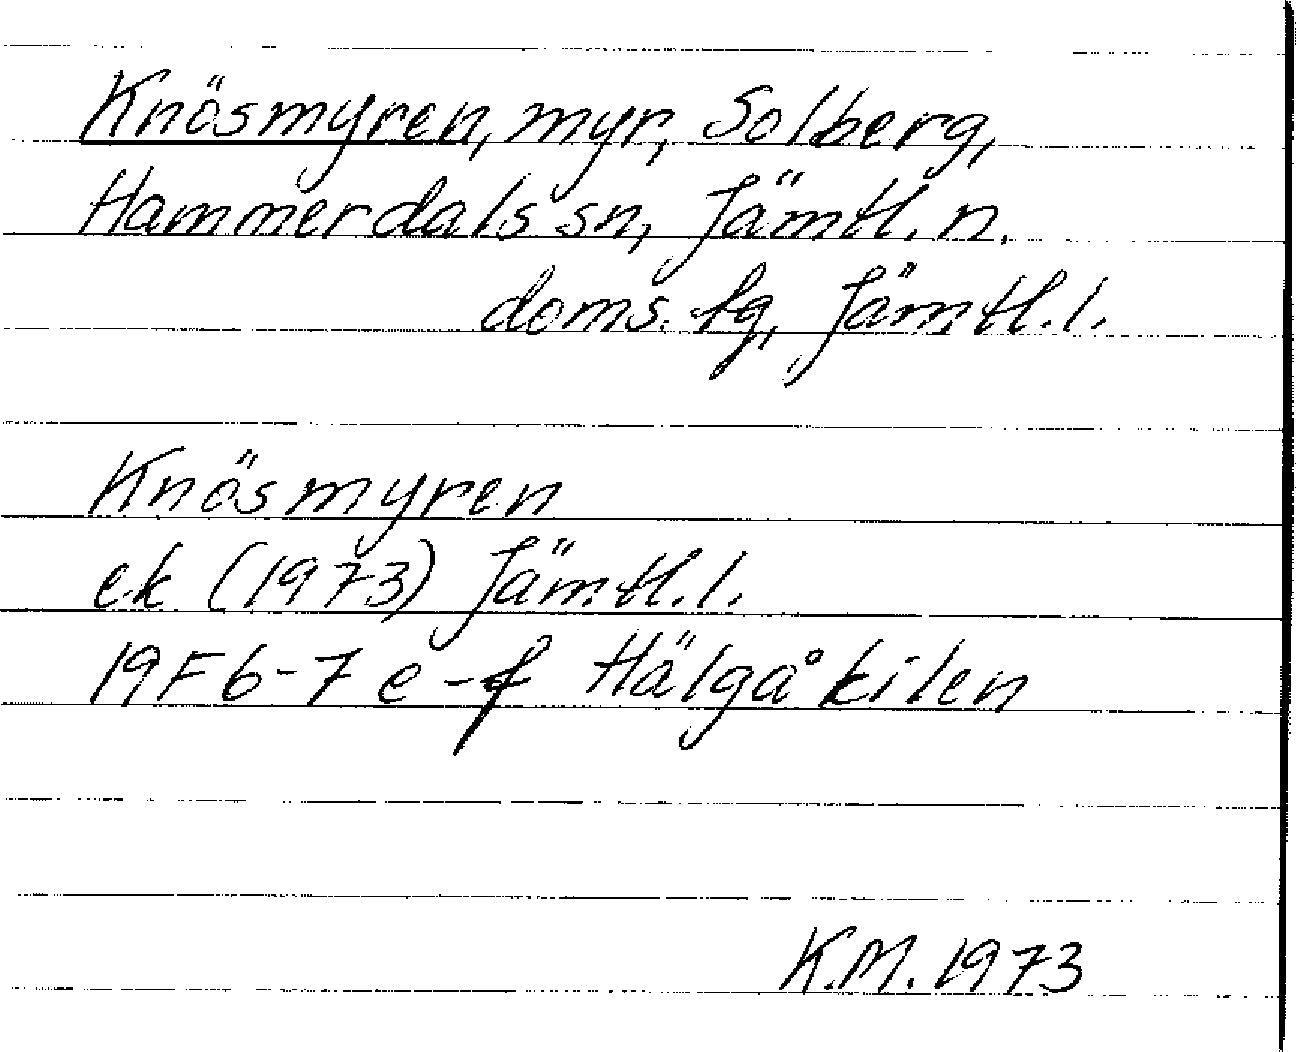 Knösmyren, myr, Solberg,
Hammerdals sn, Jämtl. n.
doms. fg, Jämtl. l.
Knösmyren
ek (1973) Jämtl. l.
19F6-7 e-f Hälgåkilen
K.M. 1973